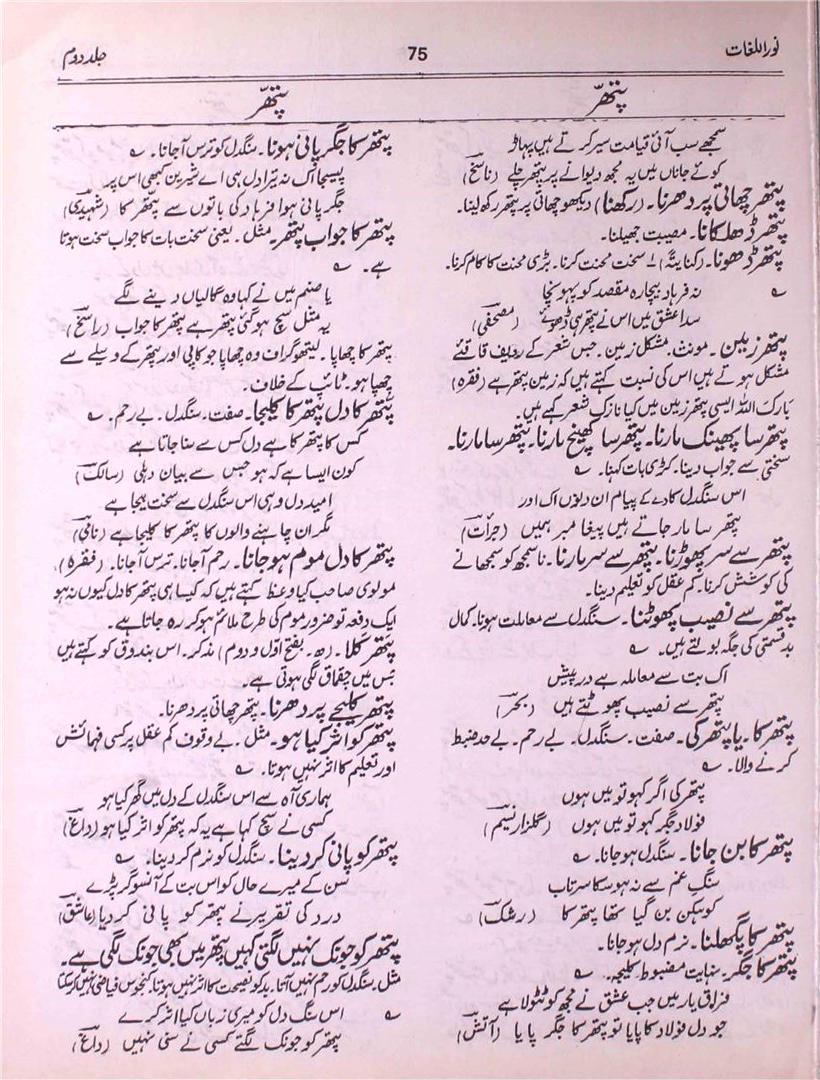 نوراللغات
75
جلد دوم
پتھّر
پتھّر
سمجھے سب آئی قیامت سیر کرتے ہیں پہاڑ
کوئے جاناں میں یہ مجھ دیوانے پر پتھر چلے (ناسخ)
پتھر چھاتی پر دھرنا۔ (رکھنا) دیکھو چھاتی پر پتھر رکھ لینا۔
پتھر ڈھلکانا۔ مصیبت جھیلنا۔
پتھر ڈھونا۔ (کنایتہً) ۱۔ سخت محنت کرنا۔ بڑی محنت کا کام کرنا۔
نہ فرہاد بیچارہ مقصد کو پہونچا
سدا عشق میں اس نے پتھر ہی ڈھوئے (مصحفی)
پتھر زمین۔ مونث۔ مشکل زمین۔ جس شعر کے ردیف قافئے
مشکل ہوتے ہیں اس کی نسبت کہتے ہیں کہ زمین پتھر ہے (فقرہ)
بارک اللہ ایسی پتھر زمین میں کیا نازک شعر کہے ہیں۔
پتھر سا پھینک مارنا۔ پتھر سا کھینچ مارنا۔ پتھر سا مارنا۔
سختی سے جواب دینا۔ کڑی بات کہنا۔
اس سنگدل کا دے کے پیام ان دنوں اک اور
پتھر سا مار جاتے ہیں پیغامبر ہمیں (جرأت)
پتھر سے سر پھوڑنا۔ پتھر سے سر مارنا۔ ناسمجھ کو سمجھانے
کی کوشش کرنا۔ کم عقل کو تعلیم دینا۔
پتھر سے نصیب پھوٹنا۔ سنگدل سے معاملت ہونا۔ کمال
بدقسمتی کی جگہ بولتے ہیں۔
اک بت سے معاملہ ہے درپیش
پتھر سے نصیب پھوٹتے ہیں (بحر)
پتھر کا۔ یا پتھر کی۔ صفت۔ سنگدل۔ بے رحم۔ بے حد ضبط
کرنے والا۔
پتھر کی اگر کہو تو میں ہوں
فولاد جگر کہو تو میں ہوں (گلزار نسیم)
پتھر کا بن جانا۔ سنگدل ہوجانا۔
سنگِ غم سے نہ ہوسکا سرتاب
کوہکن بن گیا تھا پتھر کا (رشک)
پتھر کا پگھلنا۔ نرم دل ہوجانا۔
پتھر کا جگر۔ نہایت مضبوط کلیجہ۔
فراق یار میں جب عشق نے مجھ کو ٹٹولا ہے
جو دل فولاد کا پایا تو پتھر کا جگر پایا (آتش)
پتھر کا جگر پانی ہونا۔ سنگدل کو ترس آجانا۔
پسیجا اک نہ تیرا دل ہی اے شیریں کبھی اس پر
جگر پانی ہوا فرہاد کی باتوں سے پتھر کا (شہیدی)
پتھر کا جواب پتھر۔ مثل۔ یعنی سخت بات کا جواب سخت ہوتا
ہے۔
یا صنم میں نے کہا وہ گالیاں دینے لگے
یہ مثل سچ ہوگئی پتھر ہے پتھر کا جواب (راسخ)
پتھر کا چھاپا۔ لیتھوگراف وہ چھاپا جو کاپی اور پتھر کے وسیلے سے
چھپا ہو۔ ٹائپ کے خلاف۔
پتھّر کا دل پتھر کا کلیجا۔ صفت۔ سنگدل۔ بے رحم۔
کس کا پتھر کا ہے دل کس سے سنا جاتا ہے
کون ایسا ہے کہ ہو جس سے بیان دہلی (سالک)
امید دل وہی اس سنگدل سے سخت بیجا ہے
مگر ان چاہنے والوں کا پتھر کا کلیجا ہے (نامی)
پتھر کا دل موم ہوجانا۔ رحم آجانا۔ ترس آجانا۔ (فقرہ)
مولوی صاحب کیا وعظ کہتے ہیں کہ کیسا ہی پتھر کا دل کیوں نہ ہو
ایک دفعہ تو ضرور موم کی طرح ملائم ہوکر رہ جاتا ہے۔
پتھر کلا۔ (ھ۔ بفتح اول و دوم) مذکر۔ اس بندوق کو کہتے ہیں
جس میں چقماق لگی ہوتی ہے۔
پتھر کلیجے پر دھرنا۔ پتھر چھاتی پر دھرنا۔
پتھر کو اثر کیا ہو۔ مثل۔ بے وقوف کم عقل پر کسی فہمائش
اور تعلیم کا اثر نہیں ہوتا۔
ہماری آہ سے اس سنگدل کے دل میں گھر کیا ہو
کسی نے سچ کہا ہے یہ کہ پتھر کو اثر کیا ہو (داغ)
پتھر کو پانی کردینا۔ سنگدل کو نرم کردینا۔
سن کے میرے حال کو اس بت کے آنسو گر پڑے
درد کی تقریر نے پتھر کو پانی کردیا (عاشق)
پتھر کو جونک نہیں لگتی کہیں پتھر میں بھی جونک لگی ہے۔
مثل۔ سنگدل کو رحم نہیں آتا۔ بد کو نصیحت کا اثر نہیں ہوتا۔ کنجوس فیاضی نہیں کرسکتا
اس سنگ دل کو میری زباں کیا اثر کرے
پتھر کو جونک لگتے کسی نے سنی نہیں (داغ)